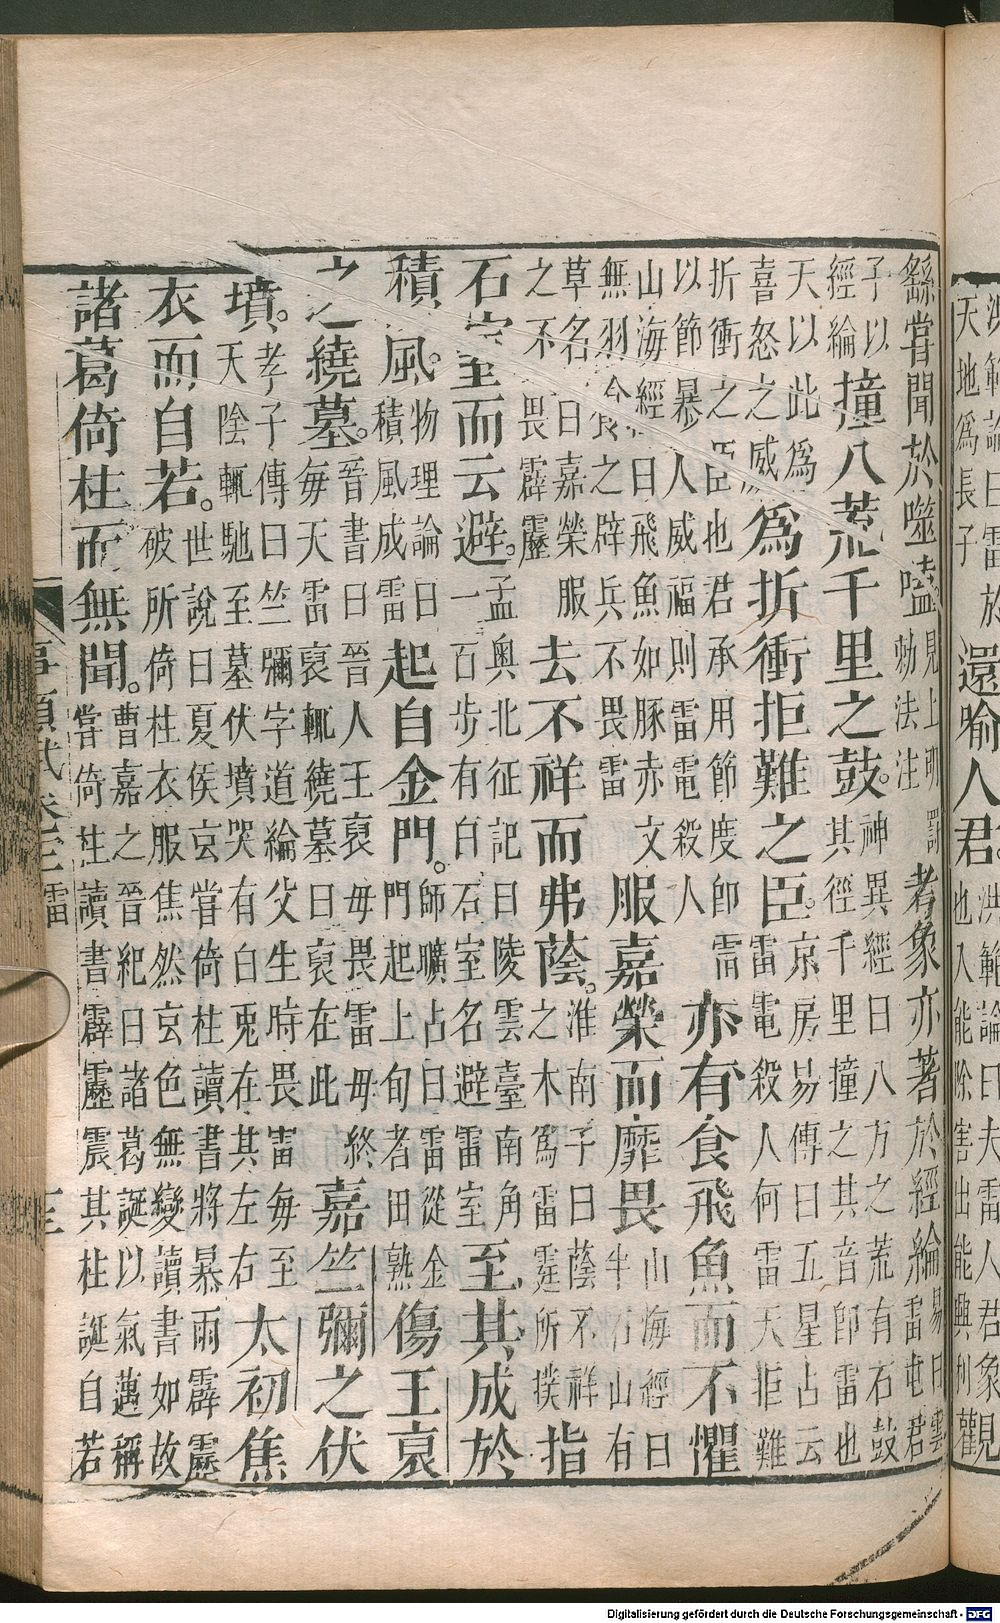 洪範論曰雷於
天地爲長子
還喻人君。
洪範論曰夫雷人君象見
也入能除害出能興利
繇嘗聞於噬嗑
見上明罰
勅法注
者象亦著於經綸
易曰雲
雷屯君
子以
經綸
撞八荒千里之鼓。
神異經曰八方之荒有石鼓
其徑千里撞之其音即雷也
天以此爲
喜怒之威
爲折衝拒難之臣。
京房易傳曰五星占云
雷電殺人何雷天拒難
折衝之臣也君承用節度即雷
以節暴人威福則雷電殺人
亦有食飛魚而不懼
山海經曰飛魚如豚赤文
無羽食之辟兵不畏雷
服嘉榮而靡畏
山海經曰
半石山有
草名曰嘉榮服
之不畏霹靂
去不祥而弗蔭。
淮南子曰蔭不祥
之木爲雷霆所撲
指
石室而云避。
孟奥北征記曰陵雲臺南角
一百步有白石室名避雷室
至其成於
積風。
物理論曰
積風成雷
起自金門。
師曠占曰雷從金
門起上旬者田熟
傷王裒
之繞墓。
晉書曰晉人王裒毋畏雷毋終
每天雷裒輒繞墓曰裒在此
嘉竺彌之伏
墳。
孝子傳曰竺彌字道綸父生時畏雷每至
天陰輒馳至墓伏墳哭有白兎在其左右
太初焦
衣而自若。
世說曰夏侯玄嘗倚柱讀書將暴雨霹靂
破所倚柱衣服焦然玄色無變讀書如故
諸葛倚柱而無聞。
曹嘉之晉紀曰諸葛誕以氣邁稱
嘗倚柱讀書霹靂震其柱誕自若
事類賦 卷三 雷
Digitalisierung gefördert durch die Deutsche Forschungsgemeinschaft - DFG